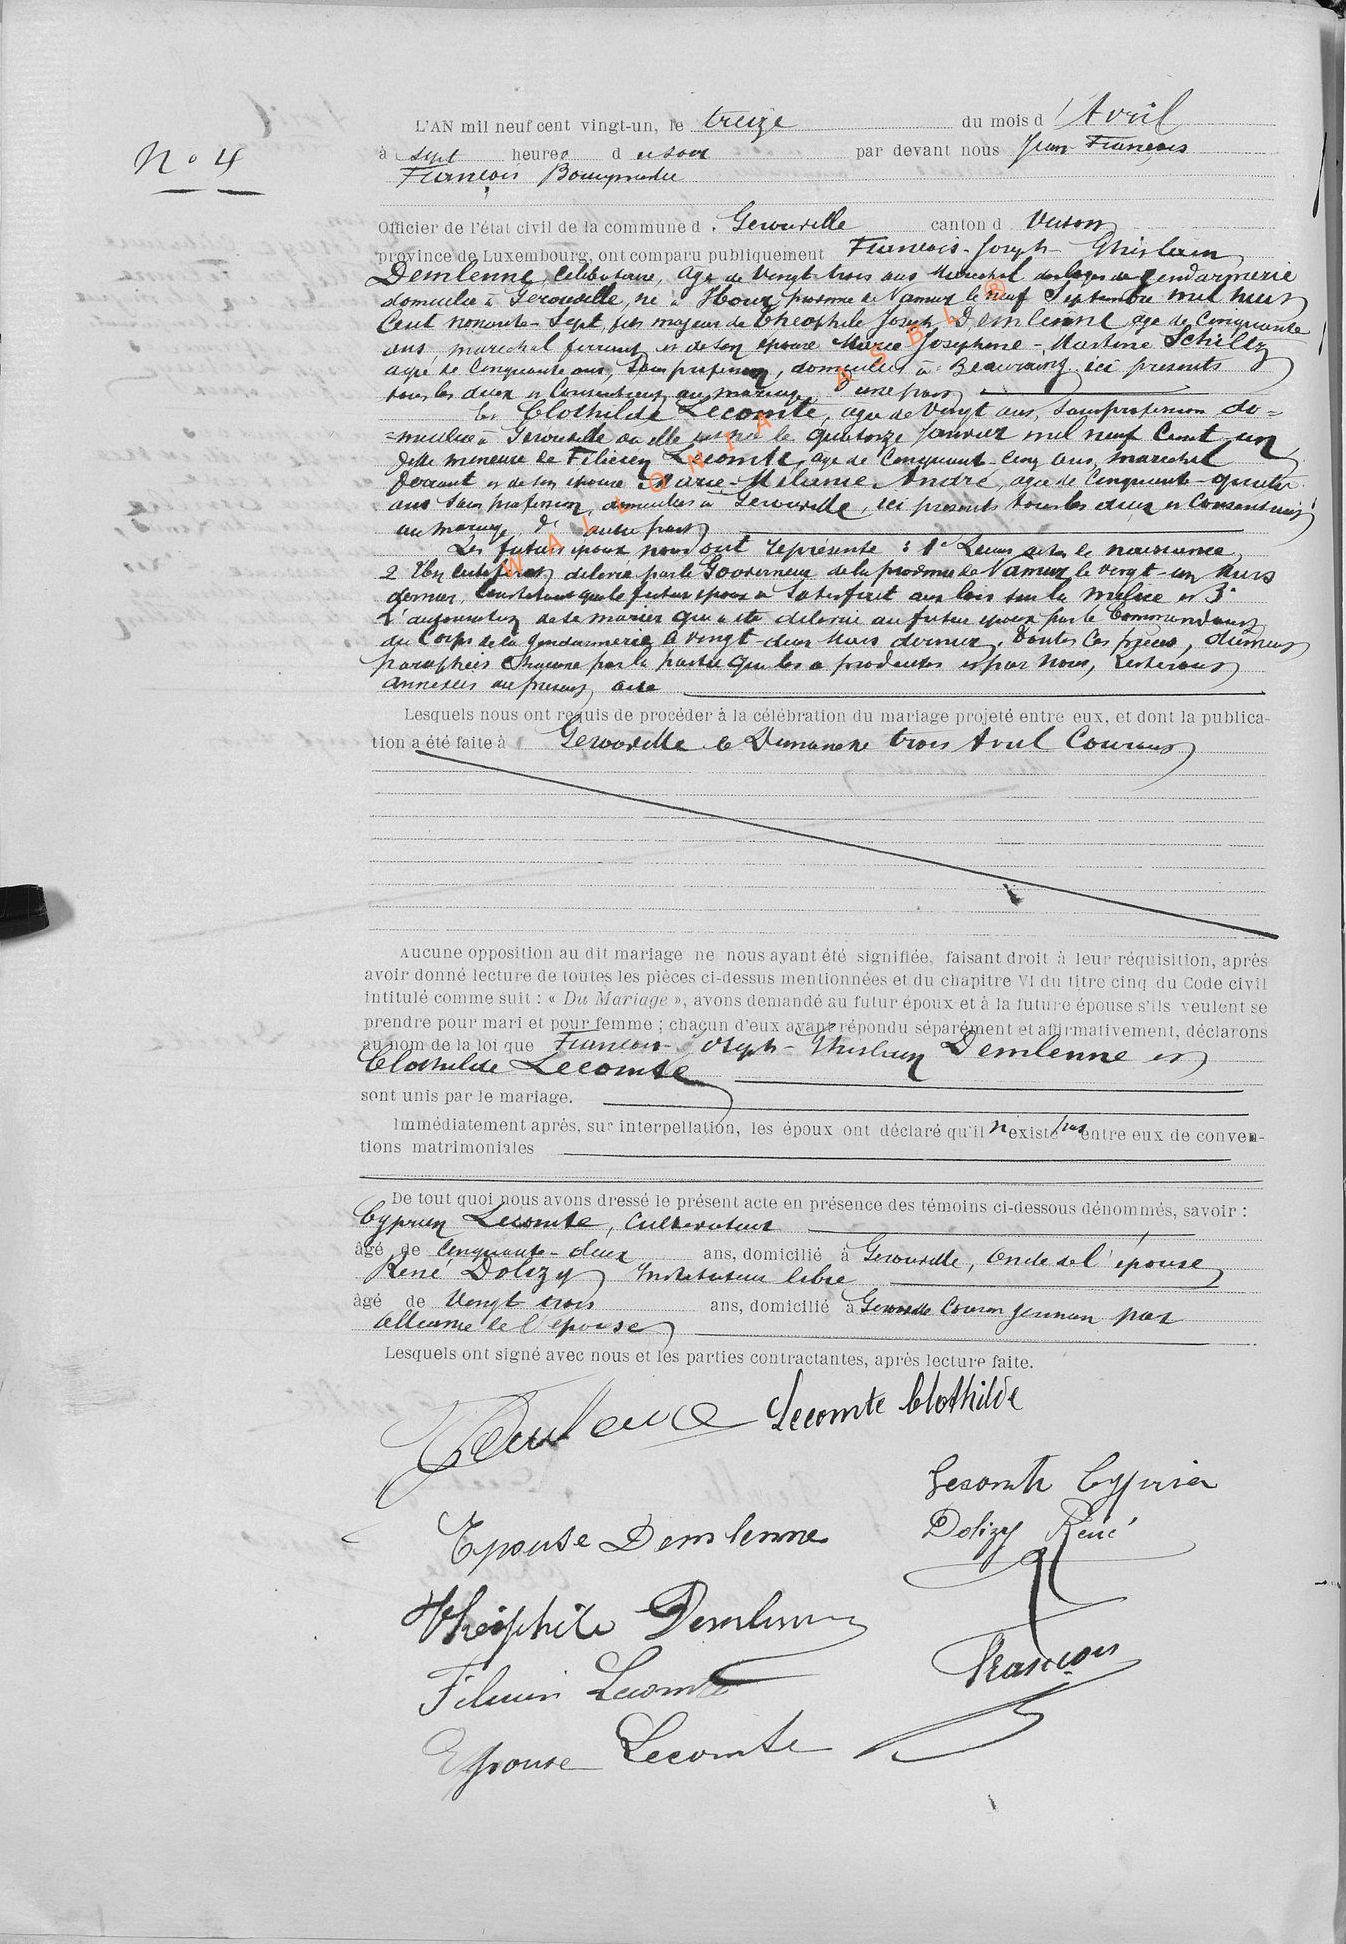 N° 4
L'AN mil neuf cent vingt-un, le treize du mois d'Avril
à sept heures du soir par devant nous Jean François
François Bourgmestre
Officier de l'état civil de la commune d. Gerouville canton d Virton
province de Luxembourg, ont comparu publiquement François-Joseph Ghislain
Demlenne, Célibataire, âgé de vingt-trois ans Maréchal des logis de gendarmerie
domicilié à Gerouville, né à Hour province de Namur le neuf Septembre mil huit
Cent nonante-Sept, fils majeur de Théophile Joseph Demlenne âgé de Cinquante
ans, maréchal ferrant et de son épouse Marie Joséphine-Martine Schiltz
agée de Cinquante ans, Sans profession, domiciliés à Beauraing ici présents
tous les deux et Consentants au mariage, d'une part
Et Clothilde Lecomte, agée de vingt ans, Sans profession do=
=miciliée à Gerouville où elle est née le quatorze Janvier mil neuf Cent un
fille mineure de Félicien Lecomte, âgé de Cinquante-Cinq ans, maréchal
ferrant et de son épouse Marie-Mélanie André, agée de Cinquante-quatre
ans Sans profession, domiciliés à Gerouville, ici présents tous les deux et Consentants
au mariage, de autre part
Les futurs époux nous ont représenté : 1° Leurs actes de naissance
2 Un Certificat délivré par le Gouverneur de la province de Namur le vingt-un Mars
dernier, Constatant que le futur époux a Satisfait aux lois sur la milice et 3°
L'autorisation de se marier qui a été délivrée au futur époux par le Commandant
du Corps de la gendarmerie le vingt-deux Mars dernier. Toutes Ces pièces, dûment
paraphées Chacune par la partie qui les a produites et par Nous, resteront
annexées au présent acte
Lesquels nous ont requis de procéder à la célébration du mariage projeté entre eux, et dont la publica-
tion a été faite à Gerouville le Dimanche trois Avril Courant
Aucune opposition au dit mariage ne nous ayant été signifiée, faisant droit à leur réquisition, après
avoir donné lecture de toutes les pièces ci-dessus mentionnées et du chapitre VI du titre cinq du Code civil
intitulé comme suit : « Du Mariage », avons demandé au futur époux et à la future épouse s'ils veulent se
prendre pour mari et pour femme ; chacun d'eux ayant répondu séparément et affirmativement, déclarons
au nom de la loi que François-Joseph-Ghislain Demlenne et
Clothilde Lecomte
sont unis par le mariage.
Immédiatement après, sur interpellation, les époux ont déclaré qu'il n'existe pas entre eux de conven-
tions matrimoniales
De tout quoi nous avons dressé le présent acte en présence des témoins ci-dessous dénommés, savoir :
Cyprien Lecomte, Cultivateur
âgé de Cinquante-deux ans, domicilié à Gerouville, Oncle de l'épouse
René Dolizy Instituteur libre
âgé de Vingt trois ans, domicilié à Gerouville Cousin germain par
alliance de l'épouse
Lesquels ont signé avec nous et les parties contractantes, après lecture faite.
Demlenne Lecomte Clothilde
Lecomte Cyprien
Epouse Demlenne Dolizy René
Théophile Demlenne
François
Félicien Lecomte
Epouse Lecomte
WALLONIA ASBL ®